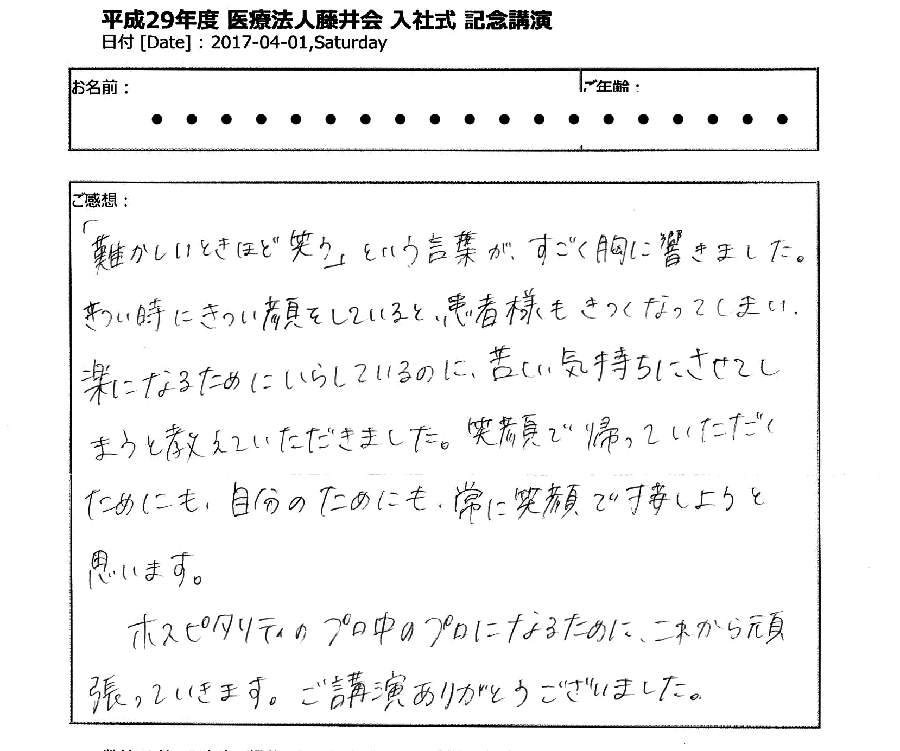 平成29年度 医療法人藤井会 入社式 記念講演
日付 [Date] : 2017-04-01,Saturday
お名前：
ご年齢：
ご感想：
「難かしいときほど笑う」という言葉が、すごく胸に響きました。
きつい時にきつい顔をしていると、患者様もきつくなってしまい、
楽になるためにいらしているのに、苦しい気持ちにさせてし
まうと教えていただきました。笑顔で帰っていただく
ためにも、自分のためにも、常に笑顔で接しようと
思います。
ホスピタリティのプロ中のプロになるために、これから頑
張っていきます。ご講演ありがとうございました。